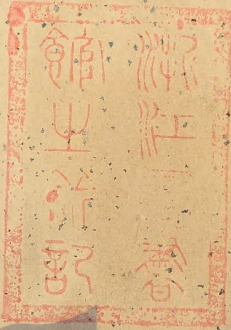 浙江書
館之印記